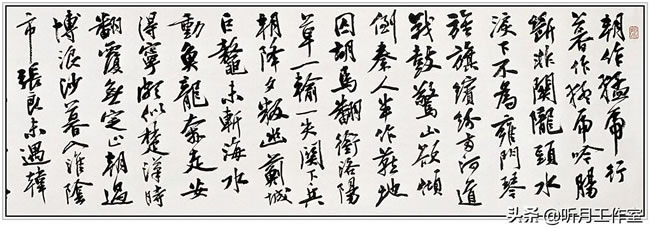 朝作猛虎行
暮作猛虎吟腸
斷非關隴頭水
淚下不為雍門琴
旌旗繽紛兩河道
戰鼓驚山欲傾
倒秦人半作燕地
囚胡馬翻銜洛陽
草一輸一失關下兵
朝降夕叛幽薊城
巨鰲未斬海水
動魚龍奔走安
得寧頗似楚漢時
翻覆無定止朝過
博浪沙暮入淮陰
市張良未遇韓
头条@听月工作室